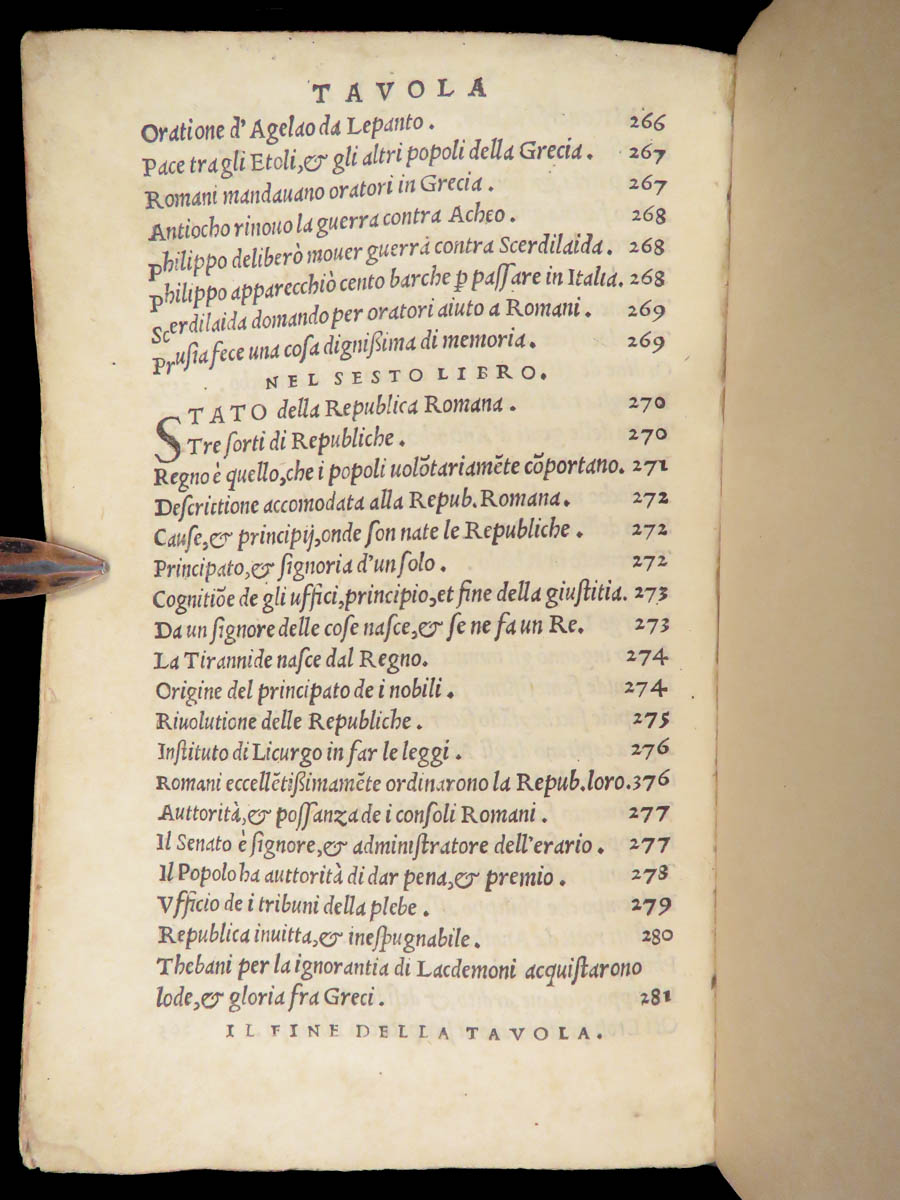 TAVOLA
Oratione d'Agelao da Lepanto. 266
Pace tra gli Etoli, & gli altri popoli della Grecia. 267
Romani mandauano oratori in Grecia. 267
Antiocho rinouo la guerra contra Acheo. 268
Philippo deliberò mouer guerra contra Scerdilaida. 268
Philippo apparecchiò cento barche ꝑ paſſare in Italia. 268
Scerdilaida domando per oratori aiuto a Romani. 269
Pruſia fece una coſa digniſsima di memoria. 269
NEL SESTO LIBRO.
STATO della Republica Romana. 270
Tre ſorti di Republiche. 270
Regno è quello, che i popoli uolõtariamẽte cõportano. 271
Deſcrittione accomodata alla Repub. Romana. 272
Cauſe, & principij, onde ſon nate le Republiche. 272
Principato, & ſignoria d'un ſolo. 272
Cognitiõe de gli uffici, principio, et fine della giuſtitia. 273
Da un ſignore delle coſe naſce, & ſe ne fa un Re. 273
La Tirannide naſce dal Regno. 274
Origine del principato de i nobili. 274
Riuolutione delle Republiche. 275
Inſtituto di Licurgo in far le leggi. 276
Romani eccellẽtiſsimamẽte ordinarono la Repub. loro. 376
Auttorità, & poſſanza de i conſoli Romani. 277
Il Senato è ſignore, & adminiſtratore dell'erario. 277
Il Popolo ha auttorità di dar pena, & premio. 278
Vfficio de i tribuni della plebe. 279
Republica inuitta, & ineſpugnabile. 280
Thebani per la ignorantia di Lacdemoni acquiſtarono
lode, & gloria fra Greci. 281
IL FINE DELLA TAVOLA.